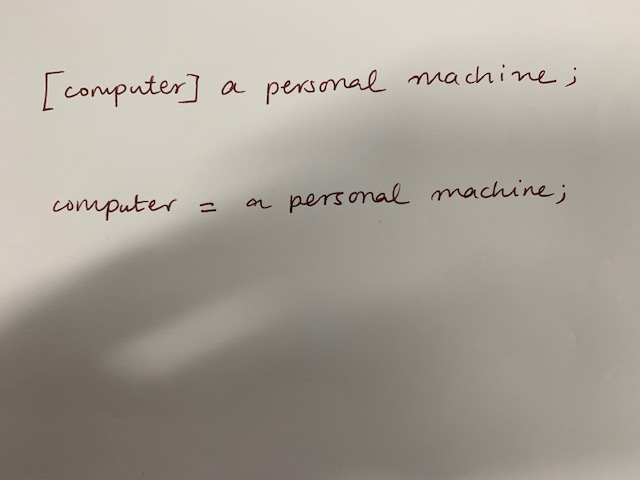 [computer] a personal machine;
computer = a personal machine;